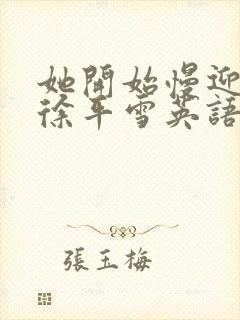 她開始慢迎
徐平雪英語
張玉梅